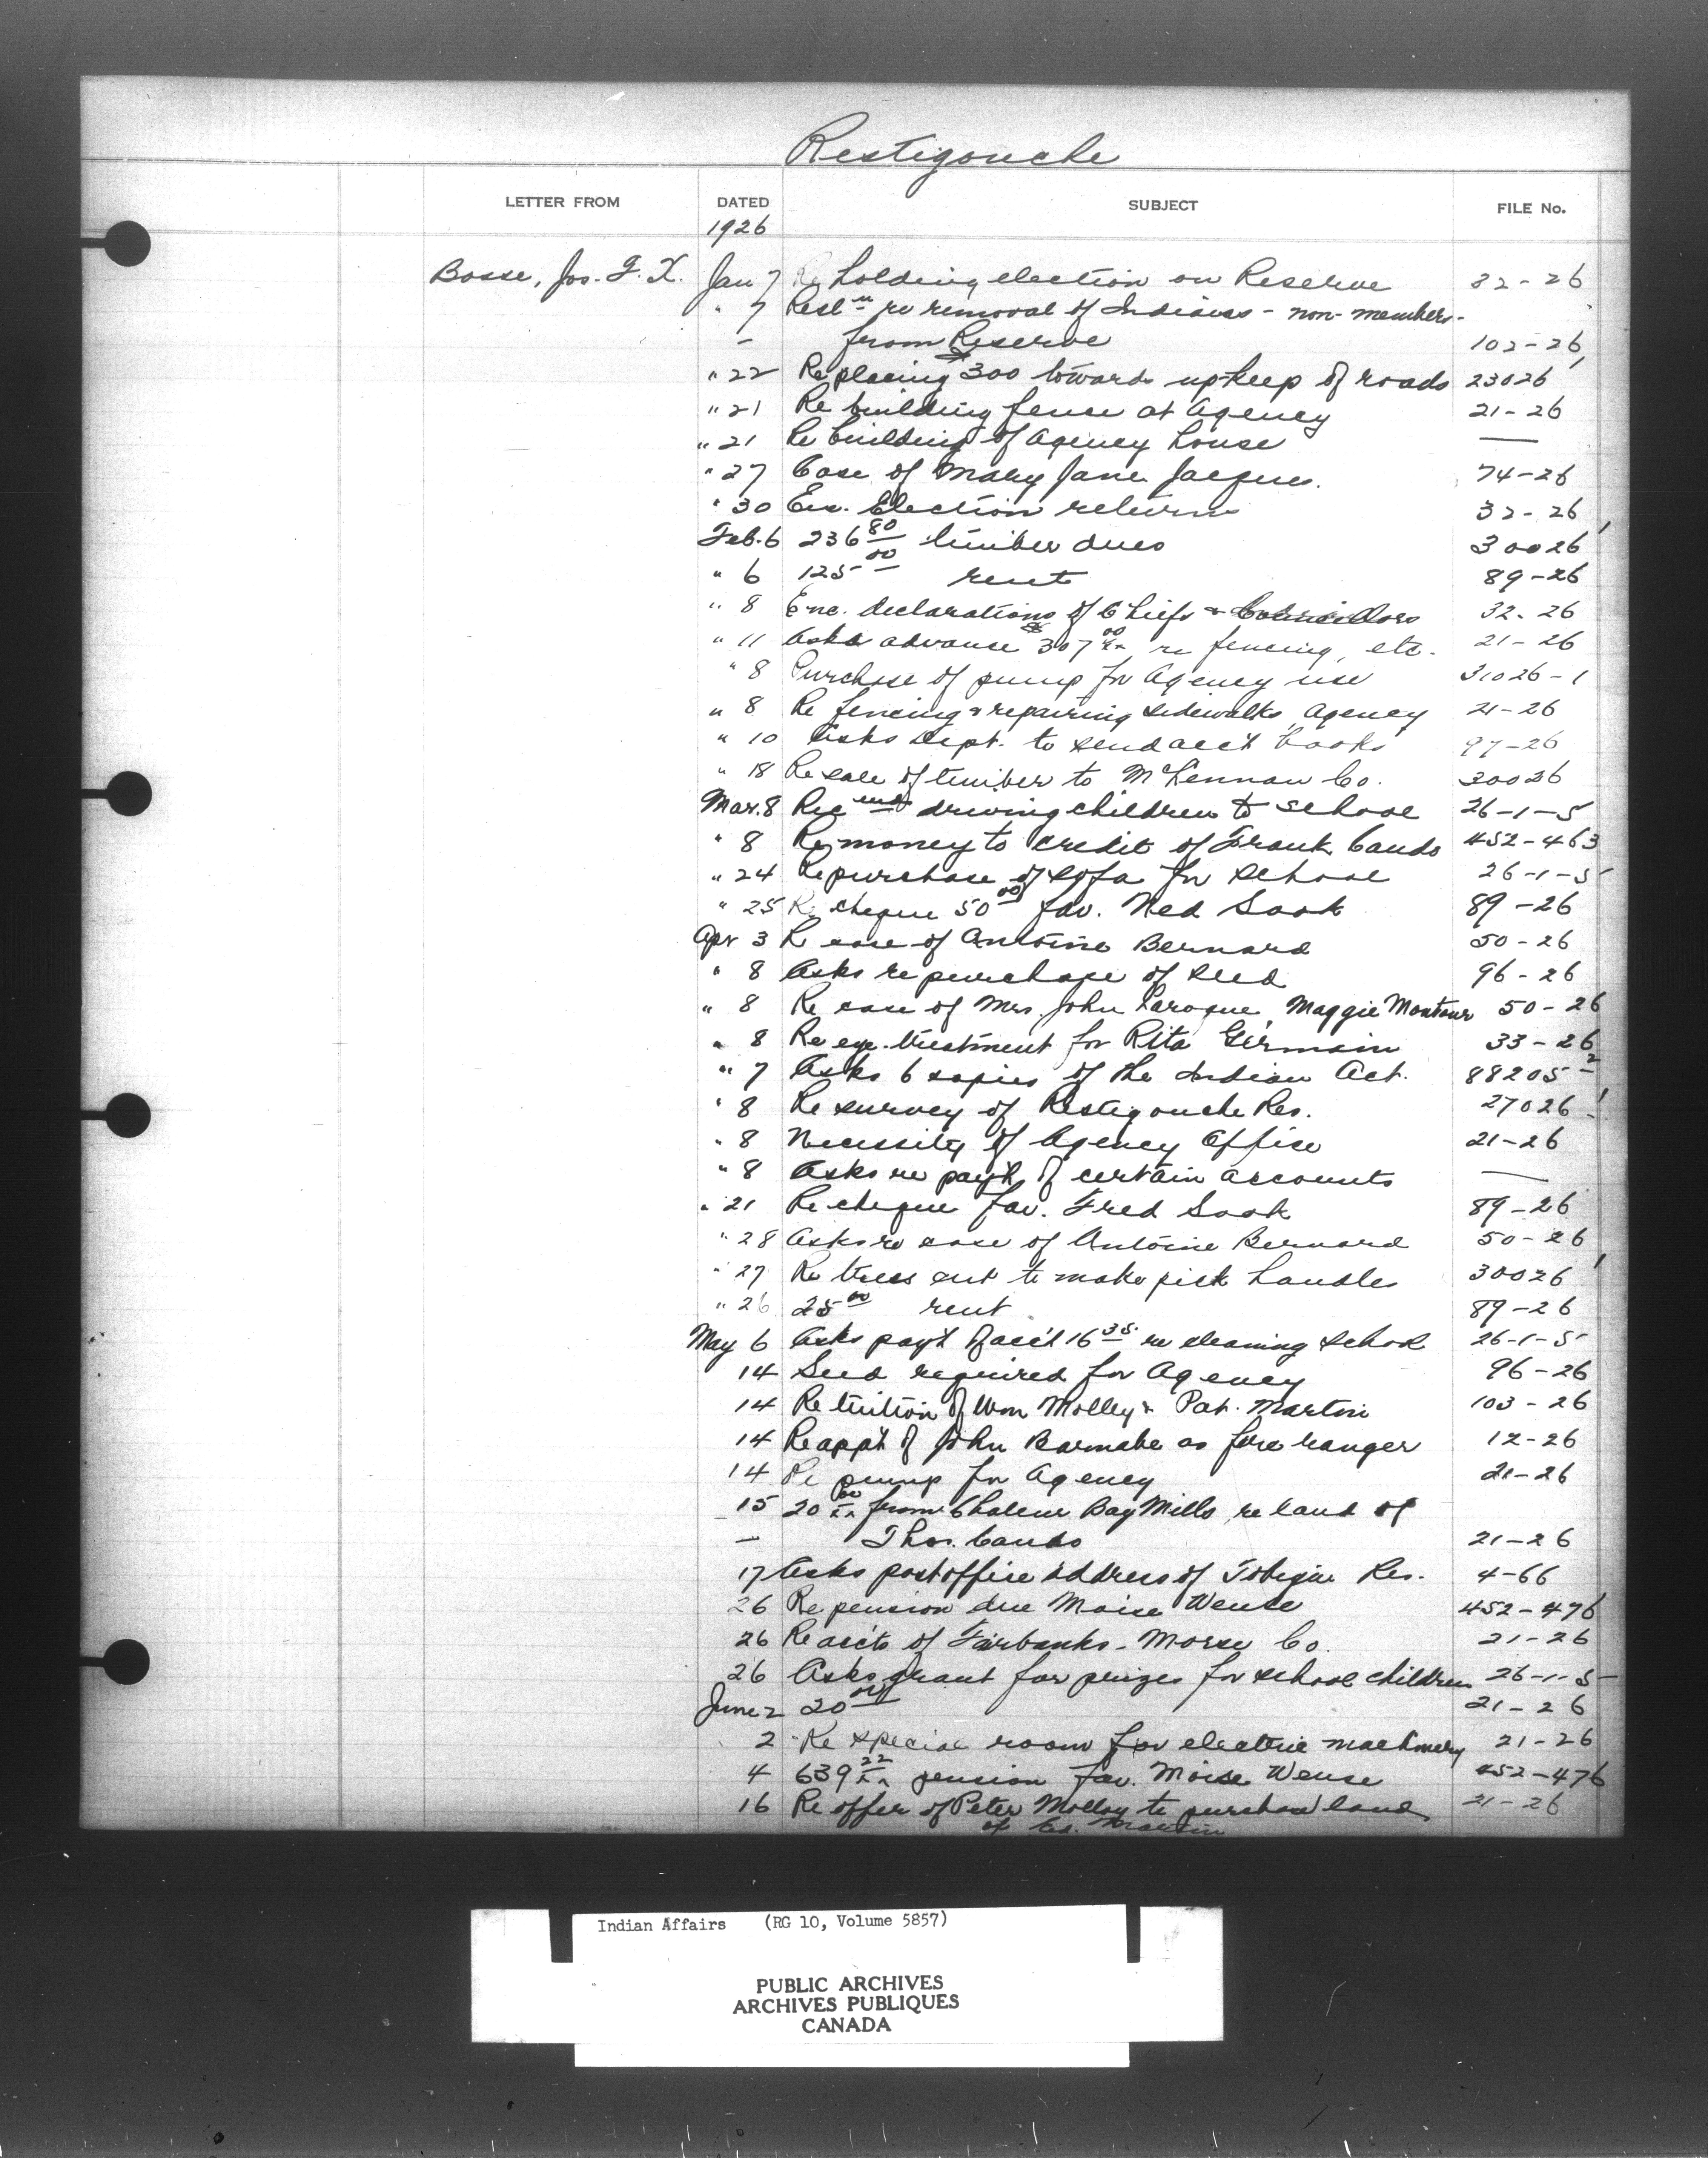 Restigouche
LETTER FROM DATED SUBJECT FILE No.
1926
Bosse, Jos. F. X. Jan 7 Re holding election on Reserve 32-26
" 7 Resl'n re removal of Indians - non-members -
- from Reserve 102-26
" 22 Re placing $300 towards up-keep of roads 23026
" 21 Re building fence at Agency 21-26
" 21 Re building of agency house —
" 27 Case of Mary Jane Jacques. 74-26
" 30 Enc. Election returns 32-26
Feb. 6 236 80 timber dues 30026
" 6 125 00 rent 89-26
" 8 Enc. declarations of Chiefs & Councillors 32-26
" 11 Asks advance $307 00 re fencing, etc. 21-26
" 8 Purchase of pump for Agency use 31026-1
" 8 Re fencing & repairing sidewalks Agency 21-26
" 10 Asks Dept. to send acc't books 97-26
" 18 Re sale of timber to McLennan Co. 30026
Mar. 8 driving children to school 26-1-5
" 8 Re money to credit of Frank Caudo 452-463
" 24 Re purchase of sofa for school 26-1-5
" 25 Re cheque 50 00 fav. Ned Sook 89-26
Apr 3 Re case of Antoine Bernard 50-26
" 8 Asks re purchase of seed 96-26
" 8 Re case of Mrs. John Laroque, Maggie Montour 50-26
" 8 Re eye-treatment for Rita Germain 33-26
" 7 Asks 6 copies of the Indian Act. 88205-2
" 8 Re survey of Restigouche Res. 27026-1
" 8 Necessity of Agency Office 21-26
" 8 Asks re pay't of certain accounts —
" 21 Re cheque fav. Fred Sook 89-26
" 28 Asks re case of Antoine Bernard 50-26
" 27 Re trees cut to make pick handles 30026 1
" 26 25 00 rent 89-26
May 6 Asks pay't of acc't 16 35 re cleaning school 26-1-5
14 Seed required for Agency 96-26
14 Re tuition of Wm Molley & Pat. Martin 103-26
14 Re app't of John Barnabe as fire ranger 12-26
14 Re pump for Agency 21-26
15 20 00 from Chaleur Bay Mills re land of
- Thos. Caudo 21-26
17 Asks post office address of Tobique Res. 4-66
26 Re pension due Moise Wense 452-476
26 Re acc'ts of Fairbanks-Morse Co. 21-26
26 Asks grant for prizes for school children 26-1-5
June 2 20 00 21-26
2 Re special room for electric machinery 21-26
4 639 22 pension fav. Moise Wense 452-476
16 Re offer of Peter Molloy to purchase land 21-26
of Martin
Indian Affairs (RG 10, Volume 5857)
PUBLIC ARCHIVES
ARCHIVES PUBLIQUES
CANADA